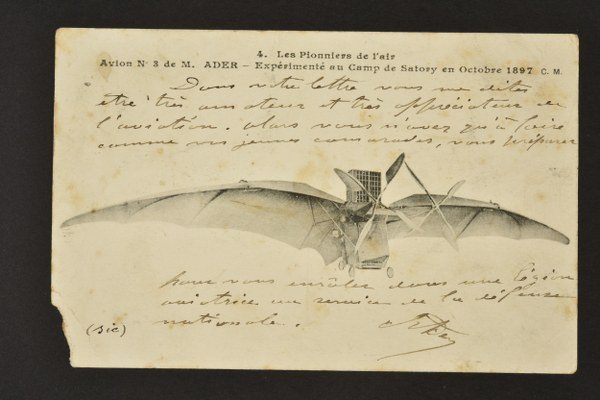 4. Les Pionniers de l'air
Avion N° 3 de M. ADER – Expérimenté au Camp de Satory en Octobre 1897 C. M.
Dans votre lettre vous me dites
être très amateur et très appréciateur de
l'aviation. Alors vous n'avez qu'à faire
comme vos jeunes camarades, vous préparer
pour vous enrôler dans une légion
aviatrice au service de la défense
nationale.
(Sic)